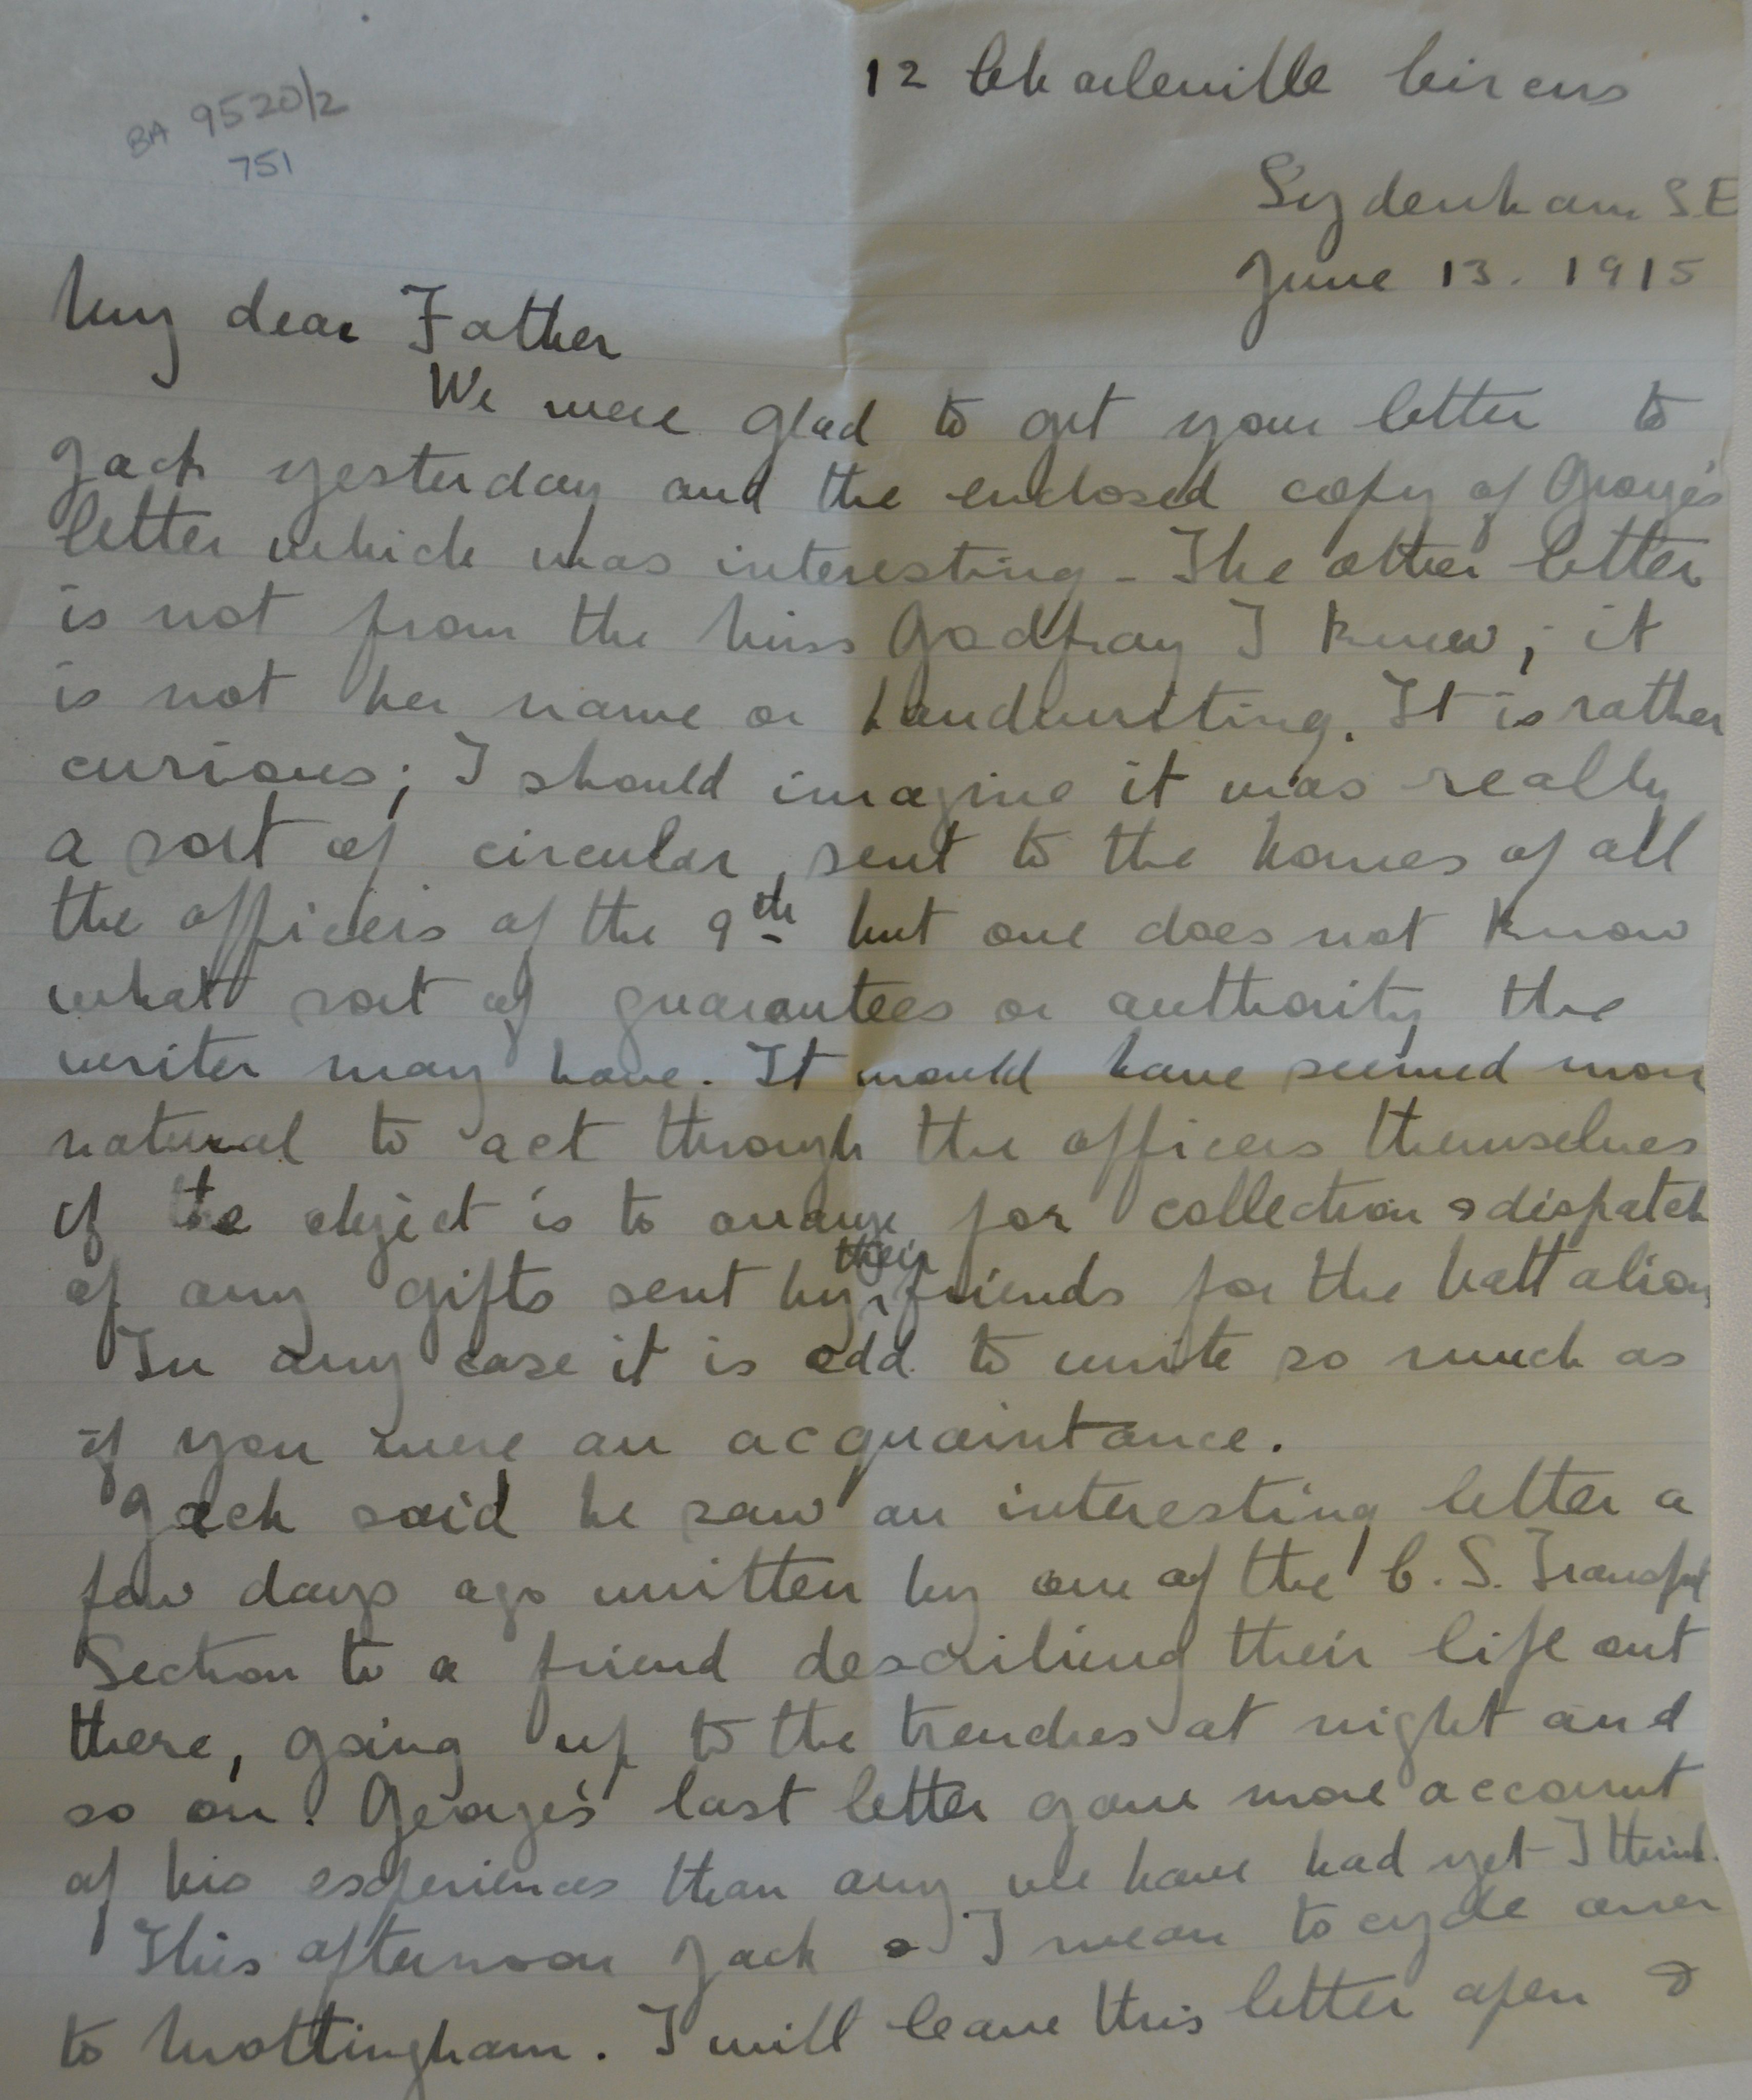 BA 9520/2
751
12 Charleville Circus
Sydenham S.E
June 13. 1915
My dear Father
We were glad to get your letter to
Jack yesterday and the enclosed copy of George's
letter which was interesting - The other letter
is not from the Miss Godfray I knew; it
is not her name or handwriting. It is rather
curious; I should imagine it was really
a sort of circular, sent to the homes of all
the officers of the 9th but one does not know
what sort of guarantees or authority the
writer may have. It would have seemed more
natural to act through the officers themselves
if the object is to arrange for collection & dispatch
of any gifts sent by their friends for the battalion
In any case it is odd to write so much as
if you were an acquaintance.
Jack said he saw an interesting letter a
few days ago written by one of the C.S. Transport
Section to a friend describing their life out
there, going up to the trenches at night and
so on. George's last letter gave more account
of his experiences than any we have had yet I think.
This afternoon Jack & I mean to cycle over
to Mottingham. I will leave this letter open &